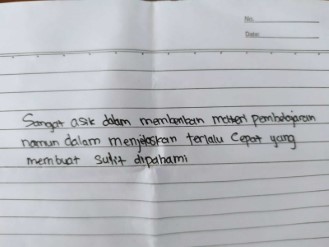 No.
Date:
Sangat asik dalam memberikan materi pembelajaran
namun dalam menjelaskan terlalu cepat yang
membuat sulit dipahami